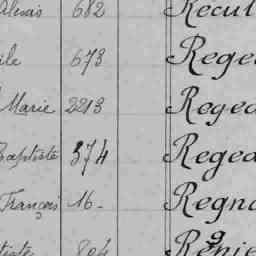 Alexis 682 Recul
ile 673 Rege
Marie 2213 Reged
Baptiste 374 Reged
François 16 - Regna
tiste 804 Rénie